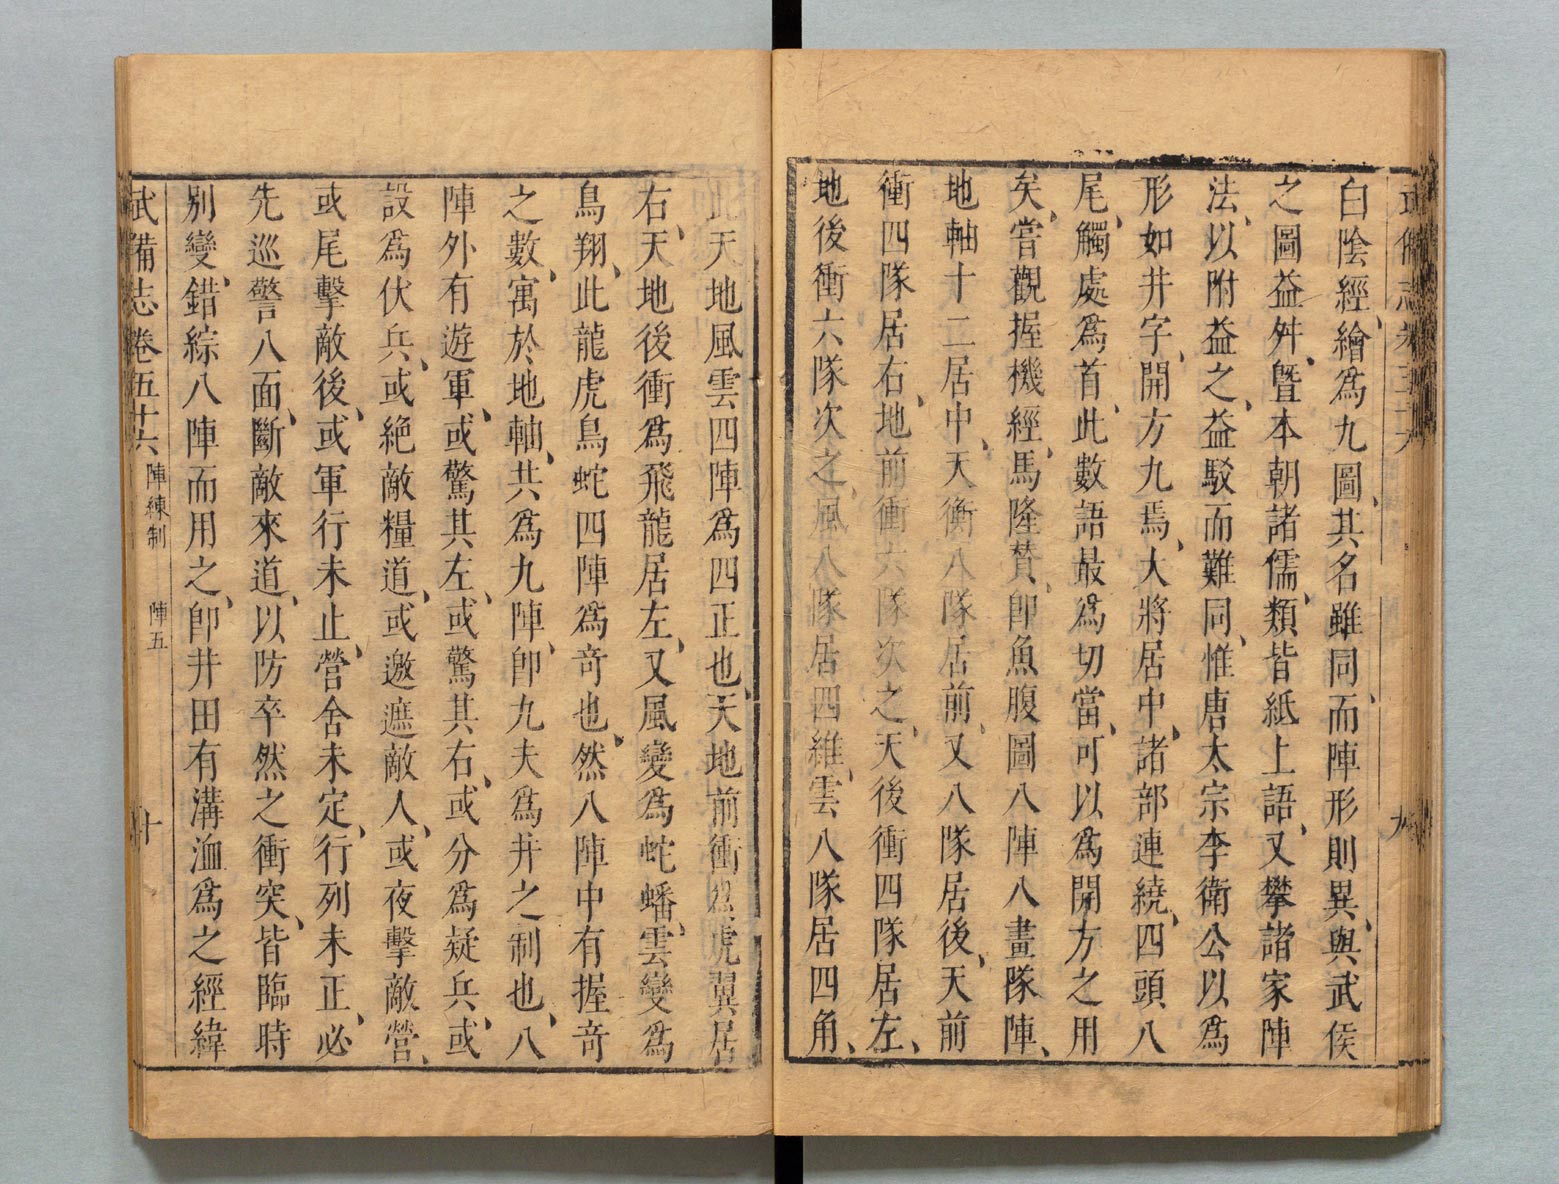 白陰經、繪爲九圖、其名雖同、而陣形則異、與武侯
之圖益舛、曁本朝諸儒、類皆紙上語、又攀諸家陣
法、以附益之、益駁而難同、惟唐太宗李衛公以爲
形如井字、開方九焉、大將居中、諸部連繞、四頭八
尾、觸處爲首、此數語最爲切當、可以爲開方之用
矣、嘗觀握機經、馬隆贊、卽魚腹圖八陣八畫隊陣、
地軸十二居中、天衡八隊居前、又八隊居後、天前
衝四隊居右、地前衝六隊次之、天後衝四隊居左、
地後衝六隊次之、風八隊居四維、雲八隊居四角、
此天地風雲四陣爲四正也、天地前衝爲虎翼居
右、天地後衝爲飛龍居左、又風變爲蛇蟠、雲變爲
鳥翔、此龍虎鳥蛇四陣爲竒也、然八陣中有握竒
之數、寓於地軸、共爲九陣、卽九夫爲井之制也、八
陣外有遊軍、或驚其左、或驚其右、或分爲疑兵、或
設爲伏兵、或絶敵糧道、或邀遮敵人、或夜擊敵營、
或尾擊敵後、或軍行未止、營舍未定、行列未正、必
先巡警八面、斷敵來道、以防卒然之衝突、皆臨時
別變、錯綜八陣而用之、卽井田有溝洫爲之經緯
武備志卷五十六 陣練制 陣五 十